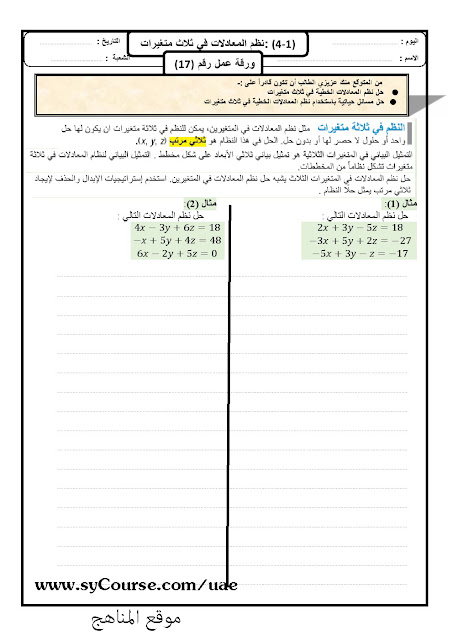 اليوم :
(4-1) :نظم المعادلات في ثلاث متغيرات
التاريخ :
الاسم :
ورقة عمل رقم (17)
الشعبة :
من المتوقع منك عزيزي الطالب أن تكون قادراً على :-
حل نظم المعادلات الخطية في ثلاث متغيرات
حل مسائل حياتية باستخدام نظم المعادلات الخطية في ثلاث متغيرات
النظم في ثلاثة متغيرات مثل نظم المعادلات في المتغيرين، يمكن للنظم في ثلاثة متغيرات ان يكون لها حل
واحد أو حلول لا حصر لها أو بدون حل. الحل في هذا النظام هو ثلاثي مرتب (x, y, z).
التمثيل البياني في المتغيرات الثلاثية هو تمثيل بياني ثلاثي الأبعاد على شكل مخطط . التمثيل البياني لنظام المعادلات في ثلاثة
متغيرات تشكل نظاماً من المخططات.
حل نظم المعادلات في المتغيرات الثلاث يشبه حل نظم المعادلات في المتغيرين. استخدم إستراتيجيات الإبدال والحذف لإيجاد
ثلاثي مرتب يمثل حلًا للنظام .
مثال (1):
حل نظم المعادلات التالي :
2x + 3y − 5z = 18
−3x + 5y + 2z = −27
−5x + 3y − z = −17
مثال (2):
حل نظم المعادلات التالي :
4x − 3y + 6z = 18
−x + 5y + 4z = 48
6x − 2y + 5z = 0
www.syCourse.com/uae
موقع المناهج